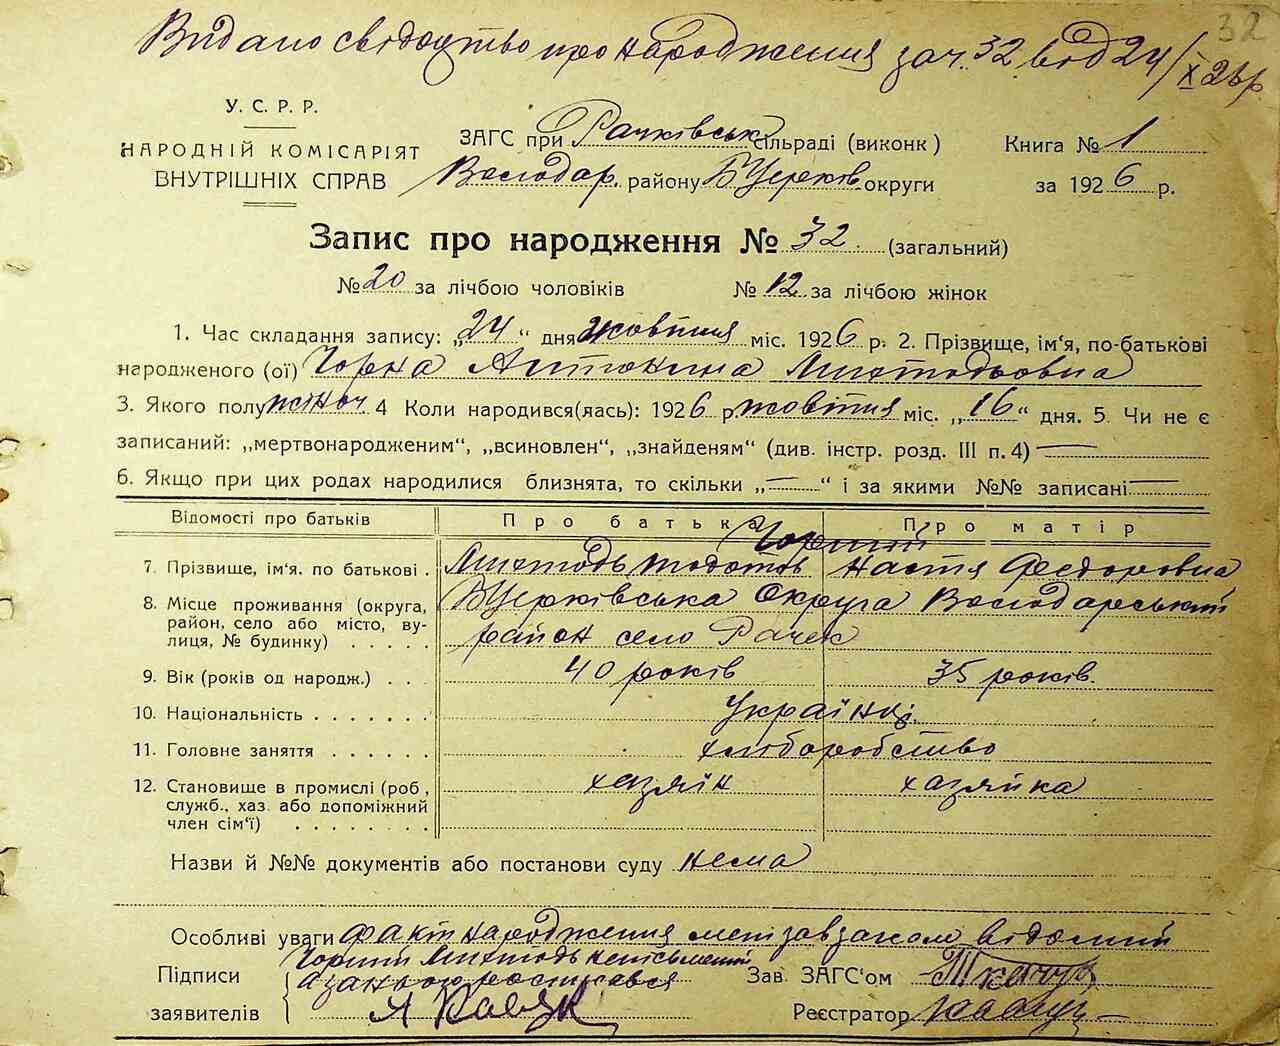 32
Видано свідоцтво про народження за ч. 32 від 24/X 26 р.
У. С. Р. Р.
НАРОДНІЙ КОМІСАРІЯТ
ВНУТРІШНІХ СПРАВ
ЗАГС при Рачківськ сільраді (виконк)
Володар. району Б Церків округи
Книга № 1
за 1926 р.
Запис про народження № 32 (загальний)
№ 20 за лічбою чоловіків № 12 за лічбою жінок
1. Час складання запису: „24“ дня жовтня міс. 1926 р. 2. Прізвище, ім‘я, по-батькові
народженого (ої) Чорна Антонина Методьовна
3. Якого полу жіноч 4 Коли народився(лась): 1926 р жовтня міс. „16“ дня. 5. Чи не є
записаний: „мертвонародженим“, „всиновлен“, „знайденям“ (див. інстр. розд. III п. 4) —
6. Якщо при цих родах народилися близнята, то скільки „—“ і за якими №№ записані —
Відомості про батьків Про батька Про матір
Чорний
7. Прізвище, ім‘я. по батькові . Методь Настя Федоровна
8. Місце проживання (округа, БЦерківська Округа Володарський
район, село або місто, ву- район село Рачек
лиця, № будинку) . . . . .
9. Вік (років од народж.) . . . 40 років 35 років.
10. Національність . . . . . . . Українці.
11. Головне заняття . . . . . . хліборобство
12. Становище в промислі (роб, хазяїн хазяйка
служб., хаз. або допоміжний
член сім‘ї) . . . . . . . .
Назви й №№ документів або постанови суду нема
Особливі уваги факт народження мені завзагсом відомий
Підписи Чорний Методь неписьменний
заявителів а за нього росписався
Я
Зав. ЗАГС‘ом Ткачук
Реєстратор